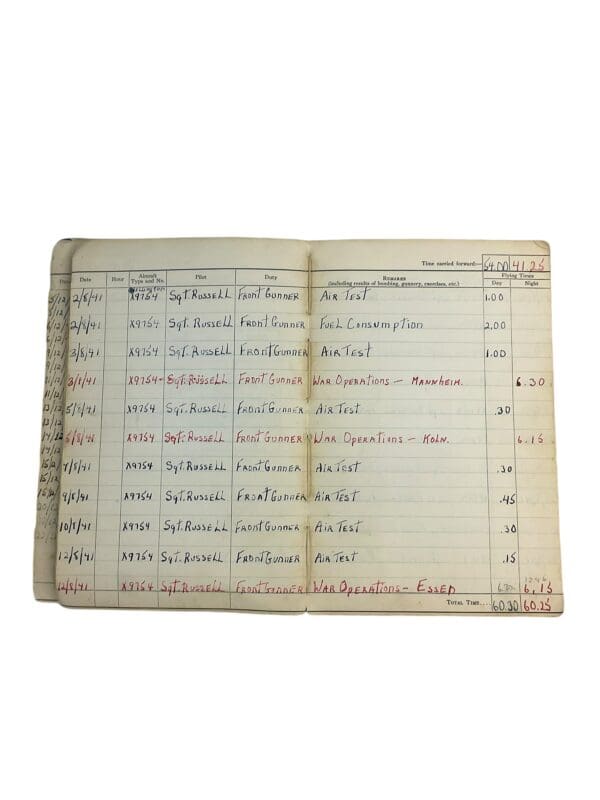 Time carried forward:— 54.00 41.25
Date Hour Aircraft Type and No. Pilot Duty Remarks (including results of bombing, gunnery, exercises, etc.) Flying Times Day Night
2/8/41 X9754 Sgt. Russell Front Gunner Air Test 1.00
2/8/41 X9754 Sgt. Russell Front Gunner Fuel Consumption 2.00
3/8/41 X9754 Sgt. Russell Front Gunner Air Test 1.00
X9754 Sgt. Russell Front Gunner War Operations – Mannheim. 6.30
5/8/41 X9754 Sgt. Russell Front Gunner Air Test .30
X9754 Sgt. Russell Front Gunner War Operations – Koln. 6.15
7/8/41 X9754 Sgt. Russell Front Gunner Air Test .30
9/8/41 X9754 Sgt. Russell Front Gunner Air Test .45
10/8/41 X9754 Sgt. Russell Front Gunner Air Test .30
12/8/41 X9754 Sgt. Russell Front Gunner Air Test .15
12/8/41 X9754 Sgt. Russell Front Gunner War Operations – Essen 6.15
Total Time.... 60.30 60.25